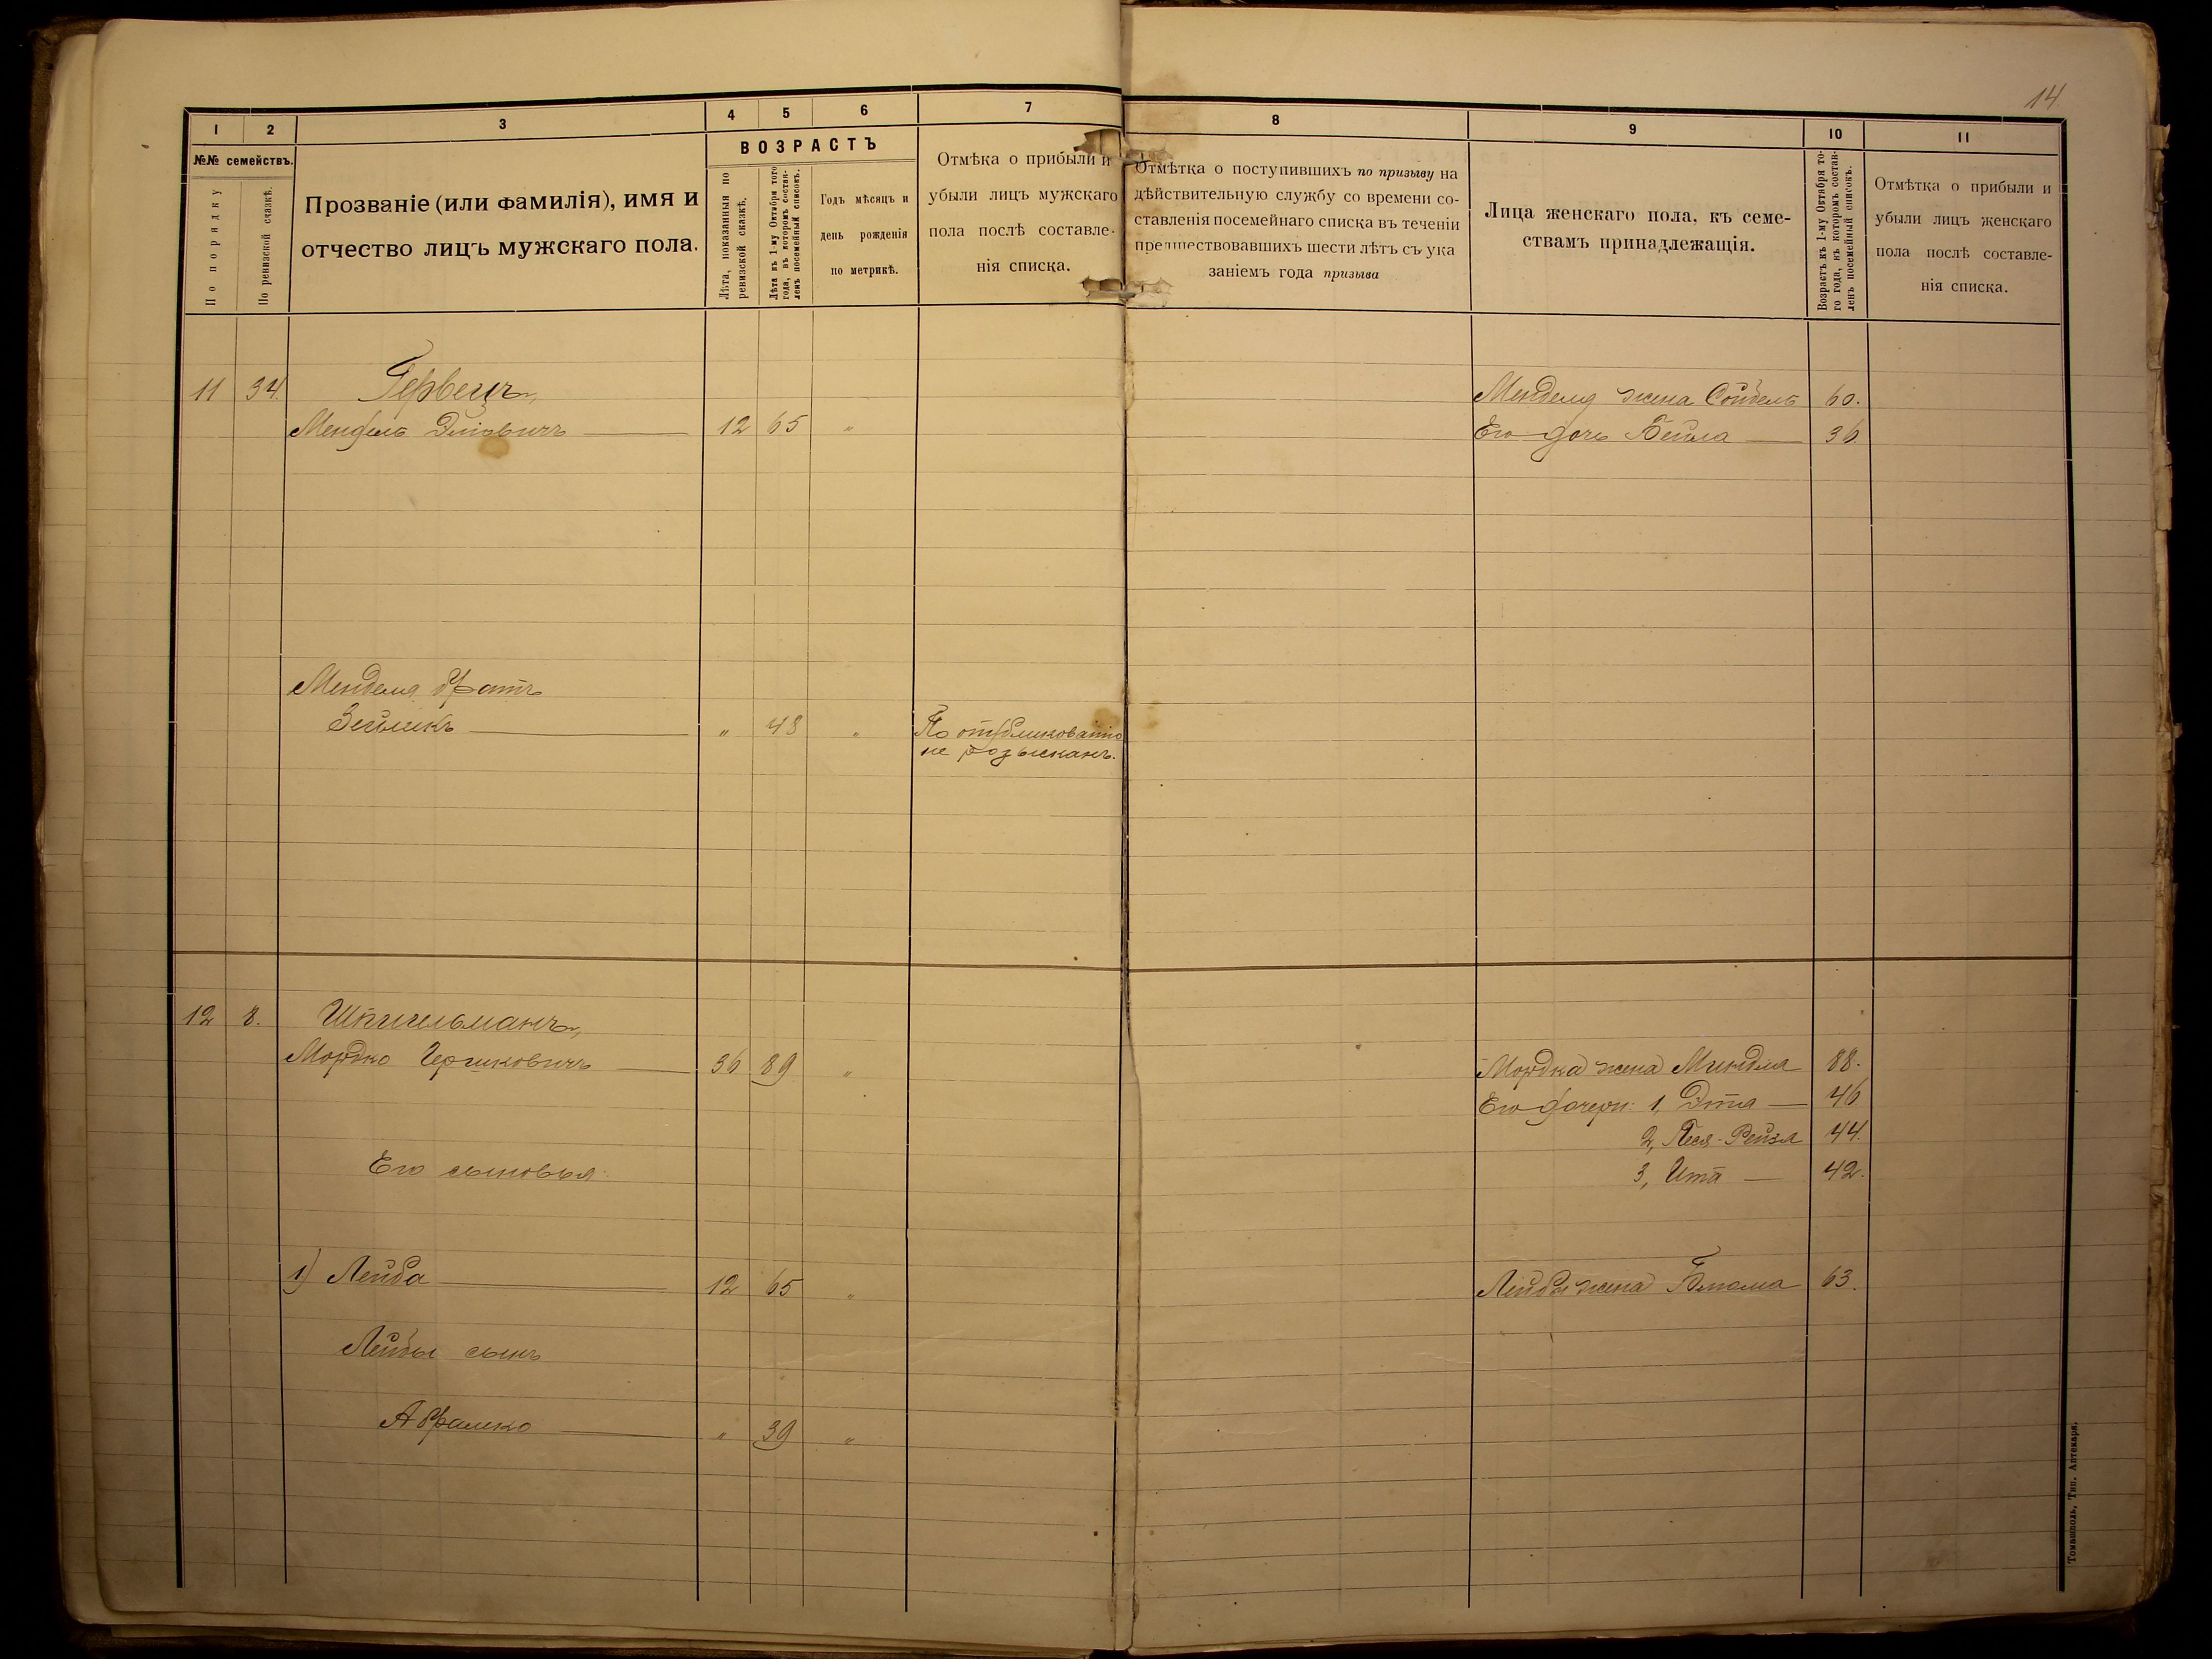 14
1
2
3
4
5
6
7
8
9
10
11
№№ семействъ.
По порядку
По ревизской сказкѣ.
Прозваніе (или фамилія), имя и
отчество лицъ мужскаго пола.
ВОЗРАСТЪ
Лѣта, показанныя по
ревизской сказкѣ.
Лѣта къ 1-му Октября того
года, въ которомъ состав-
ленъ посемейный списокъ.
Годъ мѣсяцъ и
день рожденія
по метрикѣ.
Отмѣка о прибыли и
убыли лицъ мужскаго
пола послѣ составле-
нія списка.
Отмѣтка о поступившихъ по призыву на
дѣйствительную службу со времени со-
ставленія посемейнаго списка въ теченіи
предшествовавшихъ шести лѣтъ съ ука
заніемъ года призыва
Лица женскаго пола, къ семе-
ствамъ принадлежащія.
Возрастъ къ 1-му Октября то-
го года, въ которомъ состав-
ленъ посемейный списокъ.
Отмѣтка о прибыли и
убыли лицъ женскаго
пола послѣ составле-
нія списка.
11 34. Гервецъ,
Менделя жена Сойбель 60.
Мендель Эліовичъ — 12 65 "
Его дочь Бейла — 36
Менделя братъ
Зейликъ — " 48 " По отпубликованію
не розысканъ.
12 8. Шпигельманъ,
Мордко Гершковичъ — 36 89 "
Мордка жена Миндля 88.
Его дочери: 1, Этта — 46
2, Песя-Рейзя 44.
Его сыновья:
3, Ита — 42.
1) Лейба — 12 65 "
Лейбы жена Блюма 63.
Лейбы сынъ
Абрамко — " 39 "
Томашполь, Тип. Аптекаря.